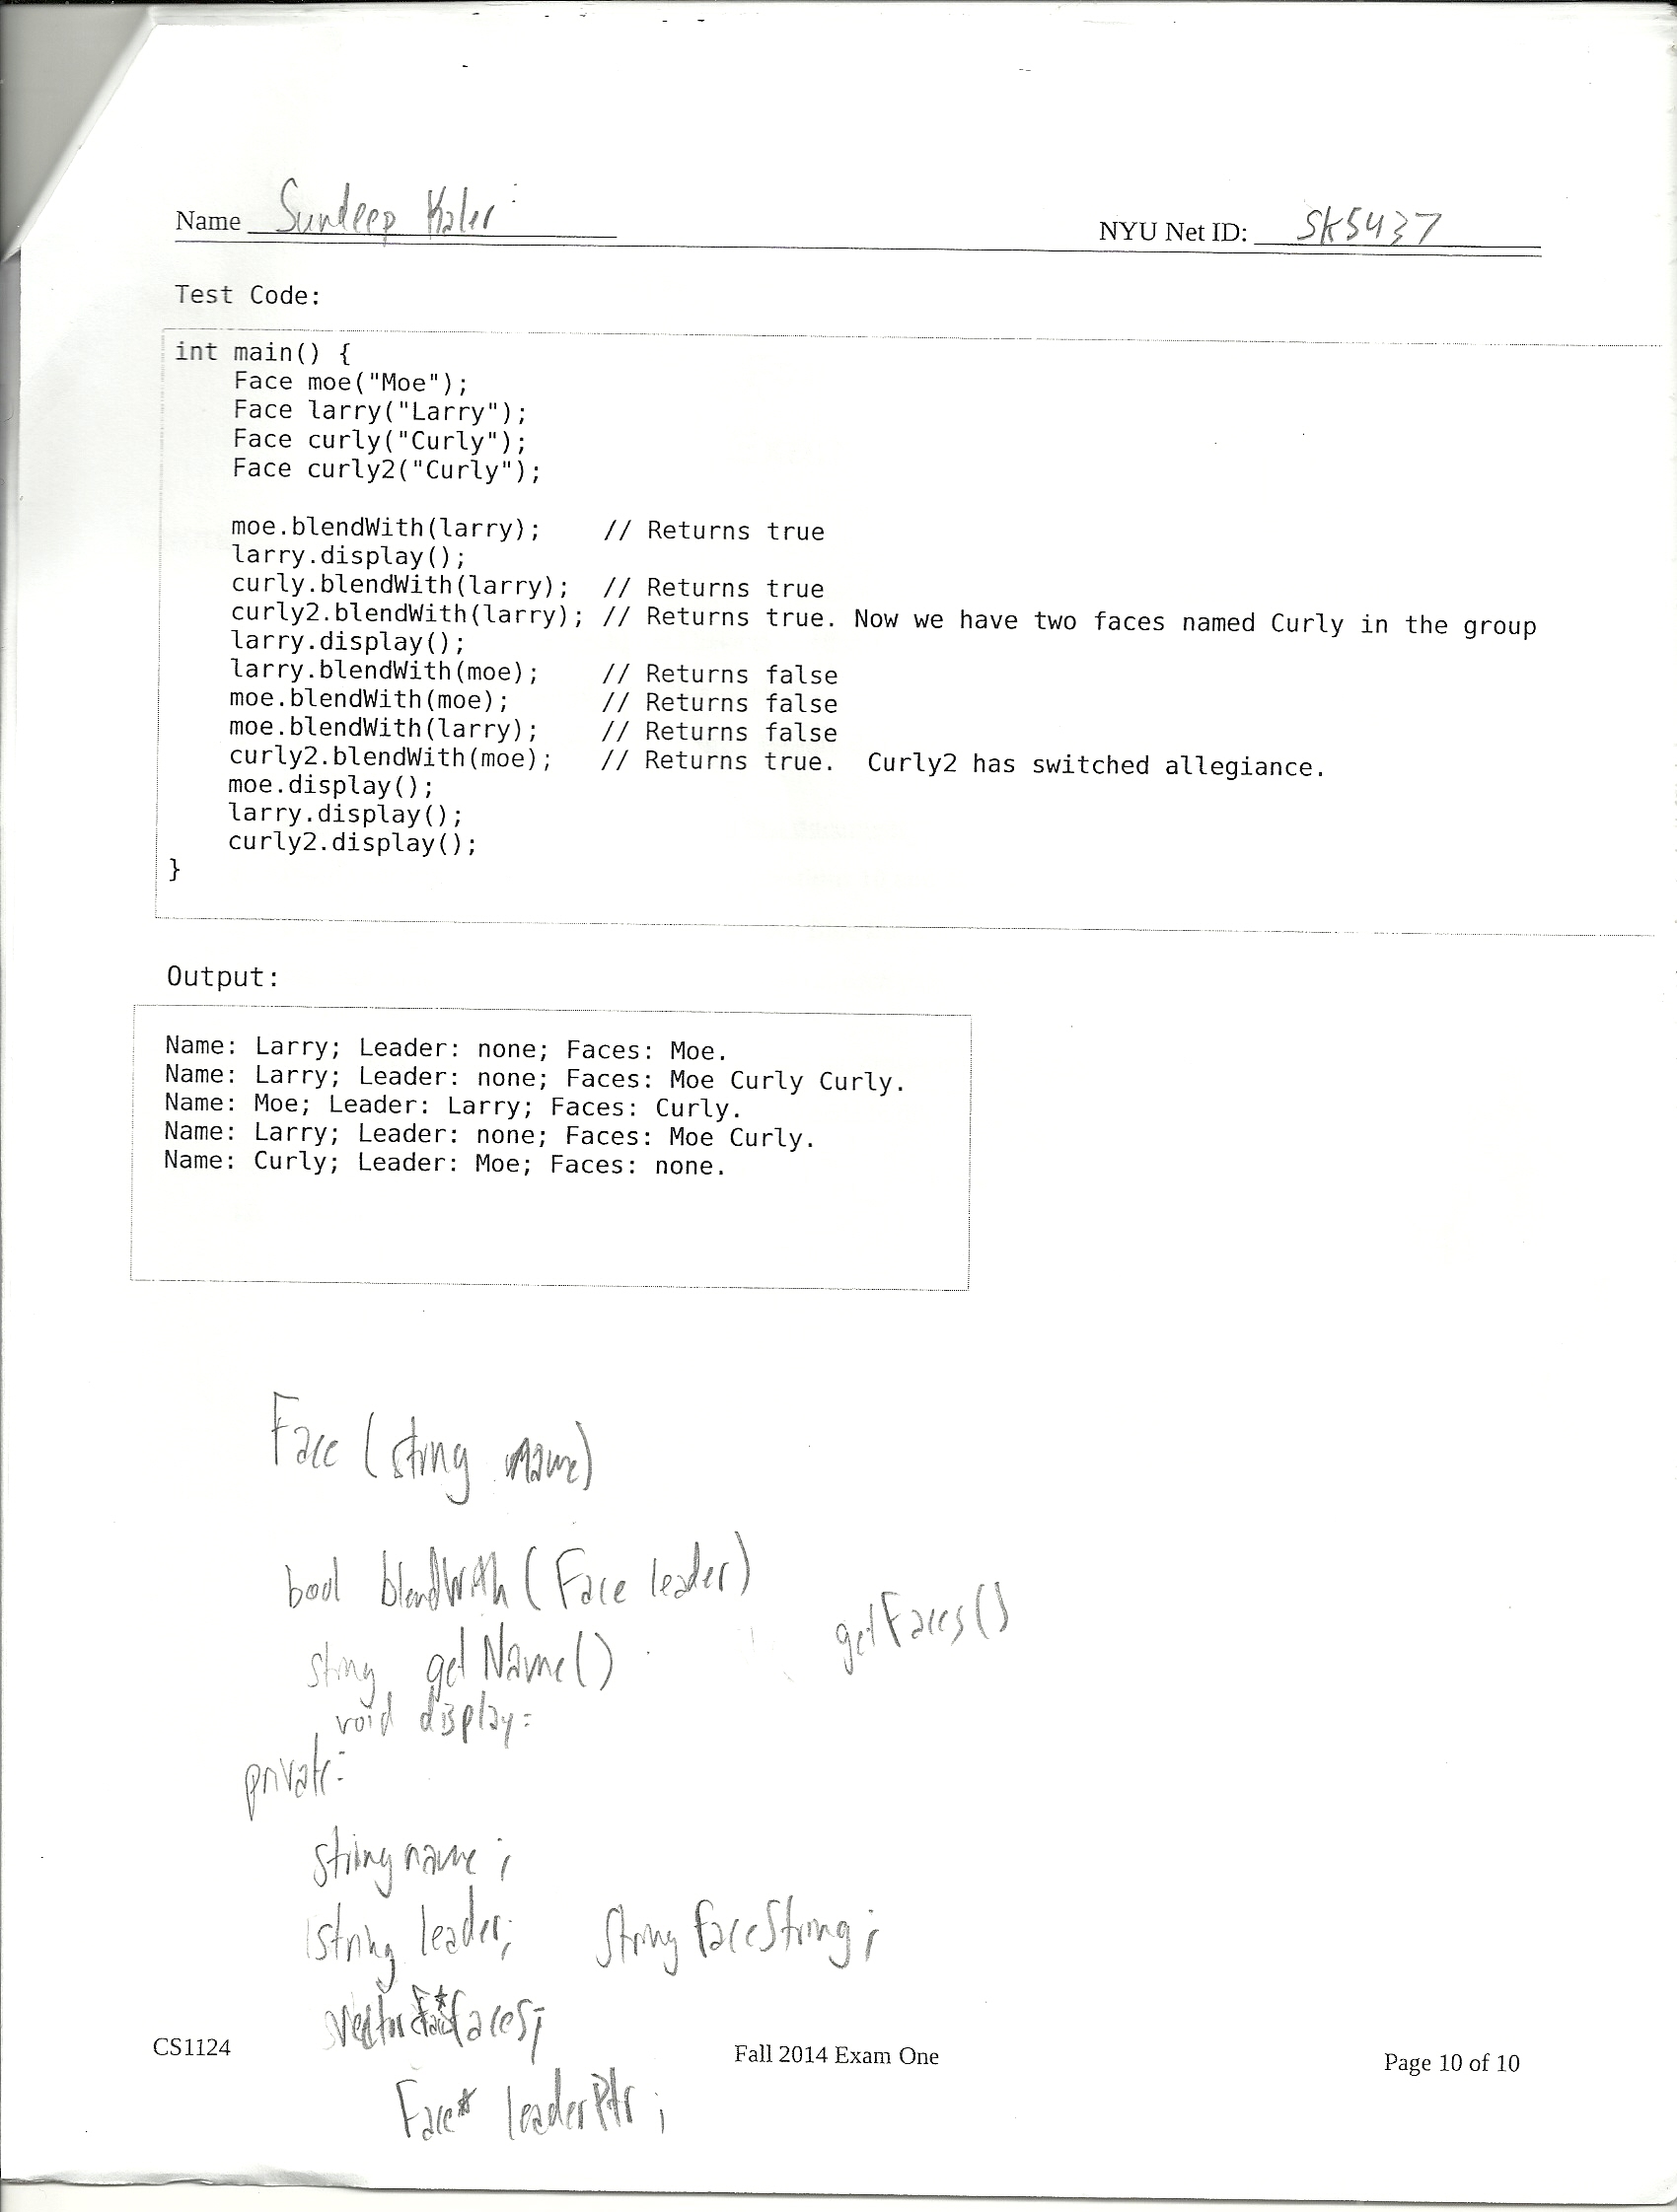 Name Sundeep Kaler NYU Net ID: SK5437
Test Code:
int main() {
    Face moe("Moe");
    Face larry("Larry");
    Face curly("Curly");
    Face curly2("Curly");
    moe.blendWith(larry);    // Returns true
    larry.display();
    curly.blendWith(larry);  // Returns true
    curly2.blendWith(larry); // Returns true. Now we have two faces named Curly in the group
    larry.display();
    larry.blendWith(moe);    // Returns false
    moe.blendWith(moe);      // Returns false
    moe.blendWith(larry);    // Returns false
    curly2.blendWith(moe);   // Returns true.  Curly2 has switched allegiance.
    moe.display();
    larry.display();
    curly2.display();
}
Output:
Name: Larry; Leader: none; Faces: Moe.
Name: Larry; Leader: none; Faces: Moe Curly Curly.
Name: Moe; Leader: Larry; Faces: Curly.
Name: Larry; Leader: none; Faces: Moe Curly.
Name: Curly; Leader: Moe; Faces: none.
Face (string name)
bool blendWith (Face leader)
string getName() getFaces()
void display:
private:
string name;
string leader; string faceString;
vector<Face*> faces;
Face* leaderPtr;
CS1124 Fall 2014 Exam One Page 10 of 10